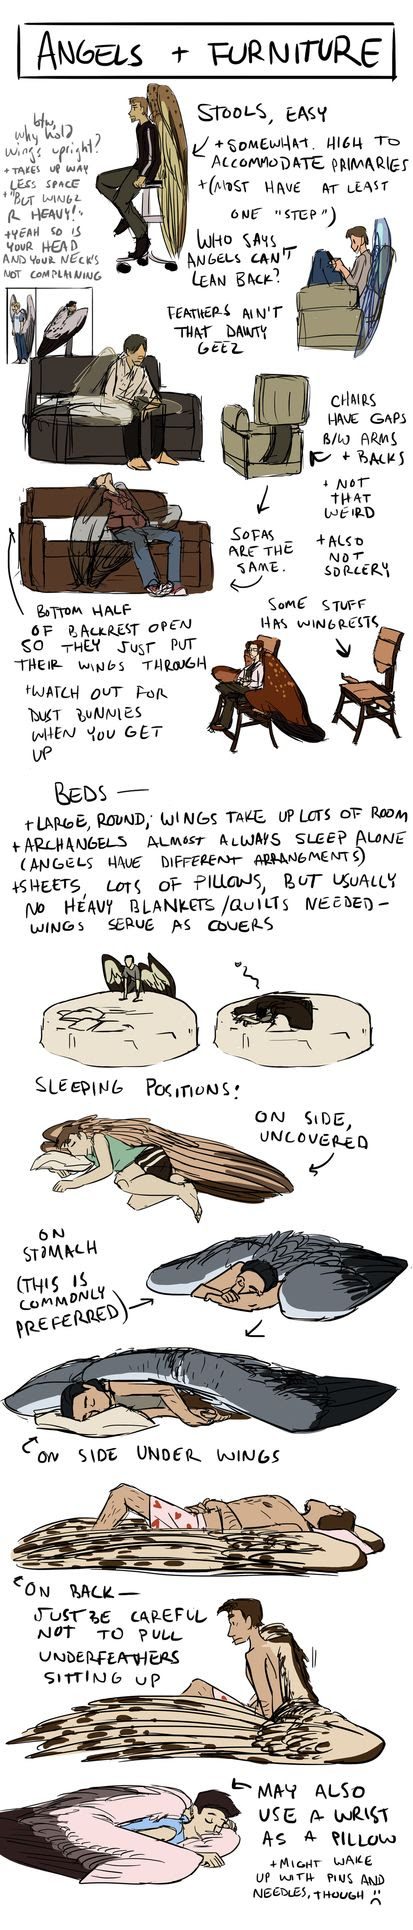 ANGELS + FURNITURE
btw,
why hold
wings upright?
+ TAKES UP WAY
LESS SPACE
+ "BUT WINGZ
R HEAVY!"
+ YEAH SO IS
YOUR HEAD
AND YOUR NECK'S
NOT COMPLAINING
STOOLS, EASY
+ SOMEWHAT HIGH TO
ACCOMMODATE PRIMARIES
+ (MOST HAVE AT LEAST
ONE "STEP")
WHO SAYS
ANGELS CAN'T
LEAN BACK?
FEATHERS AIN'T
THAT DAINTY
GEEZ
CHAIRS
HAVE GAPS
B/W ARMS
+ BACKS
+ NOT
THAT
WEIRD
+ ALSO
NOT
SORCERY
SOFAS
ARE THE
SAME.
BOTTOM HALF
OF BACKREST OPEN
SO THEY JUST PUT
THEIR WINGS THROUGH
+ WATCH OUT FOR
DUST BUNNIES
WHEN YOU GET
UP
SOME STUFF
HAS WINGRESTS
BEDS —
+ LARGE, ROUND; WINGS TAKE UP LOTS OF ROOM
+ ARCHANGELS ALMOST ALWAYS SLEEP ALONE
(ANGELS HAVE DIFFERENT ARRANGMENTS)
+ SHEETS, LOTS OF PILLOWS, BUT USUALLY
NO HEAVY BLANKETS/QUILTS NEEDED—
WINGS SERVE AS COVERS
SLEEPING POSITIONS:
ON SIDE,
UNCOVERED
ON
STOMACH
(THIS IS
COMMONLY
PREFERRED)
ON SIDE UNDER WINGS
ON BACK —
JUST BE CAREFUL
NOT TO PULL
UNDERFEATHERS
SITTING UP
MAY ALSO
USE A WRIST
AS A PILLOW
+ MIGHT WAKE
UP WITH PINS AND
NEEDLES, THOUGH :(